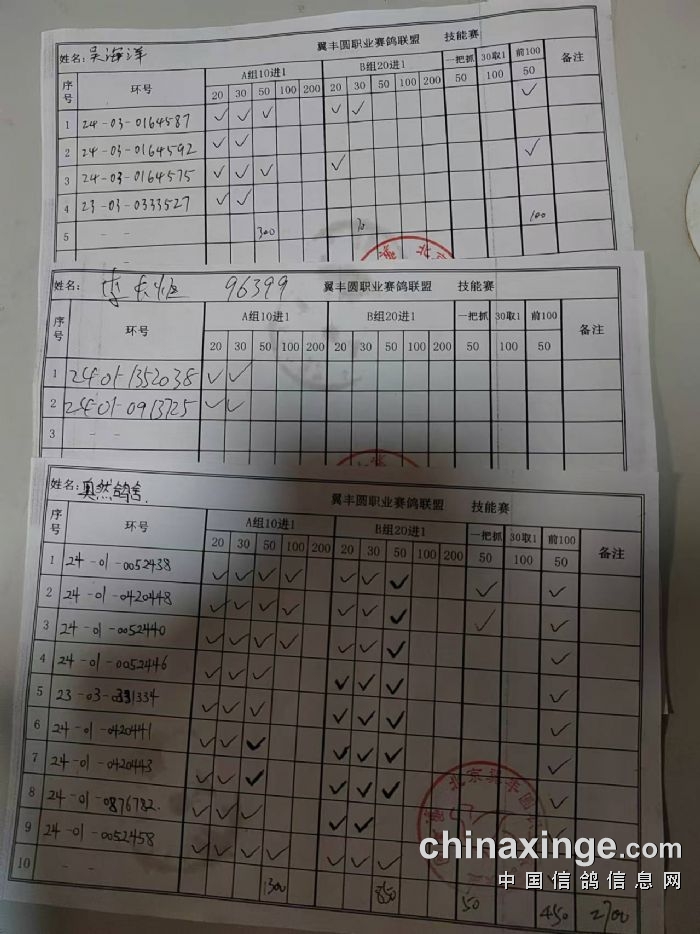 姓名: 吴海洋 翼丰圆职业赛鸽联盟 技能赛
序号 环号 A组10进1 B组20进1 一把抓 30取1 前100 备注
20 30 50 100 200 20 30 50 100 200 50 100 50
1 24-03-0164587 ✓ ✓ ✓ ✓ ✓ ✓
2 24-03-0164592 ✓ ✓
3 24-03-0164575 ✓ ✓ ✓ ✓ ✓
4 23-03-0333527 ✓ ✓
5 - - 300 70 100
姓名: 96399 翼丰圆职业赛鸽联盟 技能赛
序号 环号 A组10进1 B组20进1 一把抓 30取1 前100 备注
20 30 50 100 200 20 30 50 100 200 50 100 50
1 24-01-1352038 ✓ ✓
2 24-01-0913725 ✓ ✓
3 - -
姓名: 奥然鸽舍 翼丰圆职业赛鸽联盟 技能赛
序号 环号 A组10进1 B组20进1 一把抓 30取1 前100 备注
20 30 50 100 200 20 30 50 100 200 50 100 50
1 24-01-0052438 ✓ ✓ ✓ ✓ ✓ ✓ ✓ ✓ ✓
2 24-01-0420448 ✓ ✓ ✓ ✓ ✓ ✓ ✓ ✓ ✓
3 24-01-0052440 ✓ ✓ ✓ ✓ ✓ ✓ ✓ ✓
4 24-01-0052446 ✓ ✓ ✓ ✓ ✓ ✓ ✓
5 23-03-0331334 ✓ ✓ ✓ ✓ ✓ ✓ ✓
6 24-01-0420441 ✓ ✓ ✓ ✓ ✓ ✓ ✓
7 24-01-0420443 ✓ ✓ ✓ ✓ ✓ ✓ ✓
8 24-01-0876782 ✓ ✓ ✓ ✓ ✓ ✓
9 24-01-0052458 ✓ ✓ ✓ ✓ ✓ ✓ ✓ ✓
10 - - 1300 850 50 450 2700
北京翼丰圆
chinaxinge.com
中国信鸽信息网